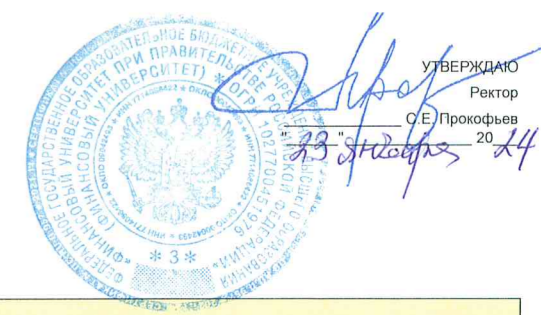 УТВЕРЖДАЮ
Ректор
С.Е. Прокофьев
"23" января 2024
ФЕДЕРАЛЬНОЕ ГОСУДАРСТВЕННОЕ ОБРАЗОВАТЕЛЬНОЕ БЮДЖЕТНОЕ УЧРЕЖДЕНИЕ ВЫСШЕГО ОБРАЗОВАНИЯ
"ФИНАНСОВЫЙ УНИВЕРСИТЕТ ПРИ ПРАВИТЕЛЬСТВЕ РОССИЙСКОЙ ФЕДЕРАЦИИ"
(ФИНАНСОВЫЙ УНИВЕРСИТЕТ) * ОГРН 1027700451976
* 3 *